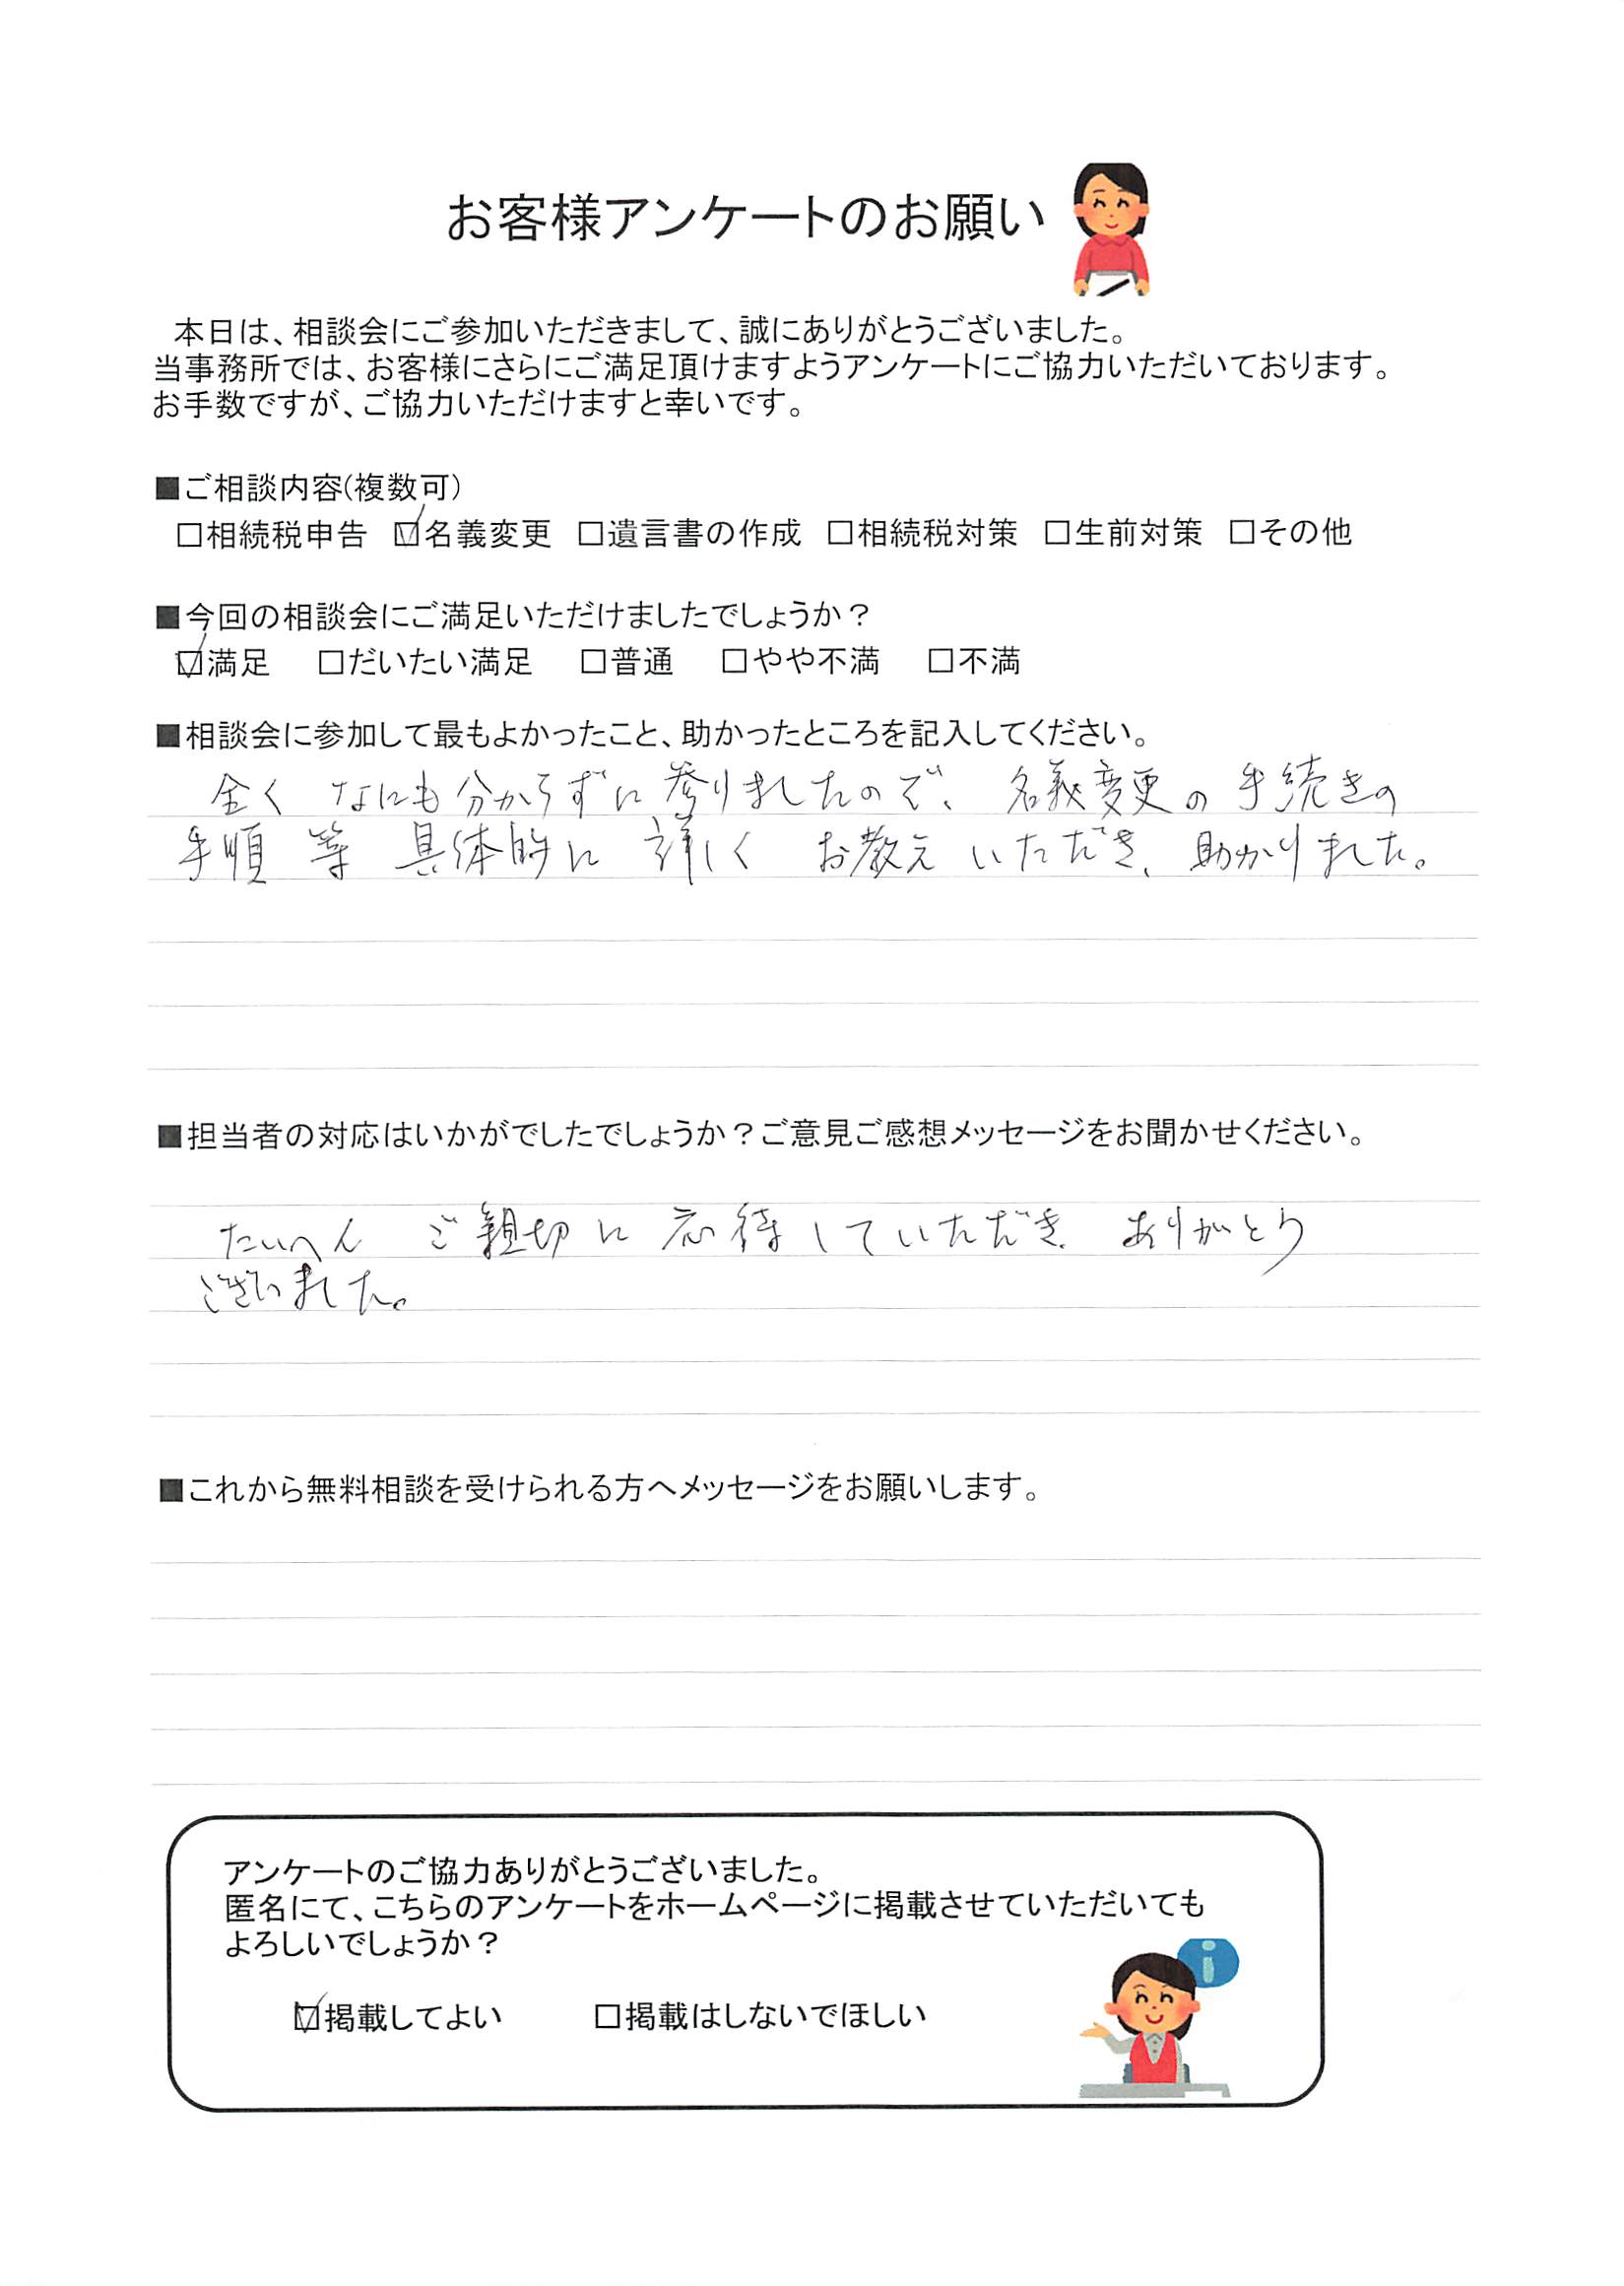 お客様アンケートのお願い
本日は、相談会にご参加いただきまして、誠にありがとうございました。
当事務所では、お客様にさらにご満足頂けますようアンケートにご協力いただいております。
お手数ですが、ご協力いただけますと幸いです。
■ご相談内容(複数可)
□相続税申告 ☑名義変更 □遺言書の作成 □相続税対策 □生前対策 □その他
■今回の相談会にご満足いただけましたでしょうか？
☑満足 □だいたい満足 □普通 □やや不満 □不満
■相談会に参加して最もよかったこと、助かったところを記入してください。
全く なにも分からずに参りましたので、名義変更の手続きの
手順 等 具体的に 詳しく お教え いただき、助かりました。
■担当者の対応はいかがでしたでしょうか？ご意見ご感想メッセージをお聞かせください。
たいへん ご親切に 応待していただき、ありがとう
ございました。
■これから無料相談を受けられる方へメッセージをお願いします。
アンケートのご協力ありがとうございました。
匿名にて、こちらのアンケートをホームページに掲載させていただいても
よろしいでしょうか？
i
☑掲載してよい □掲載はしないでほしい